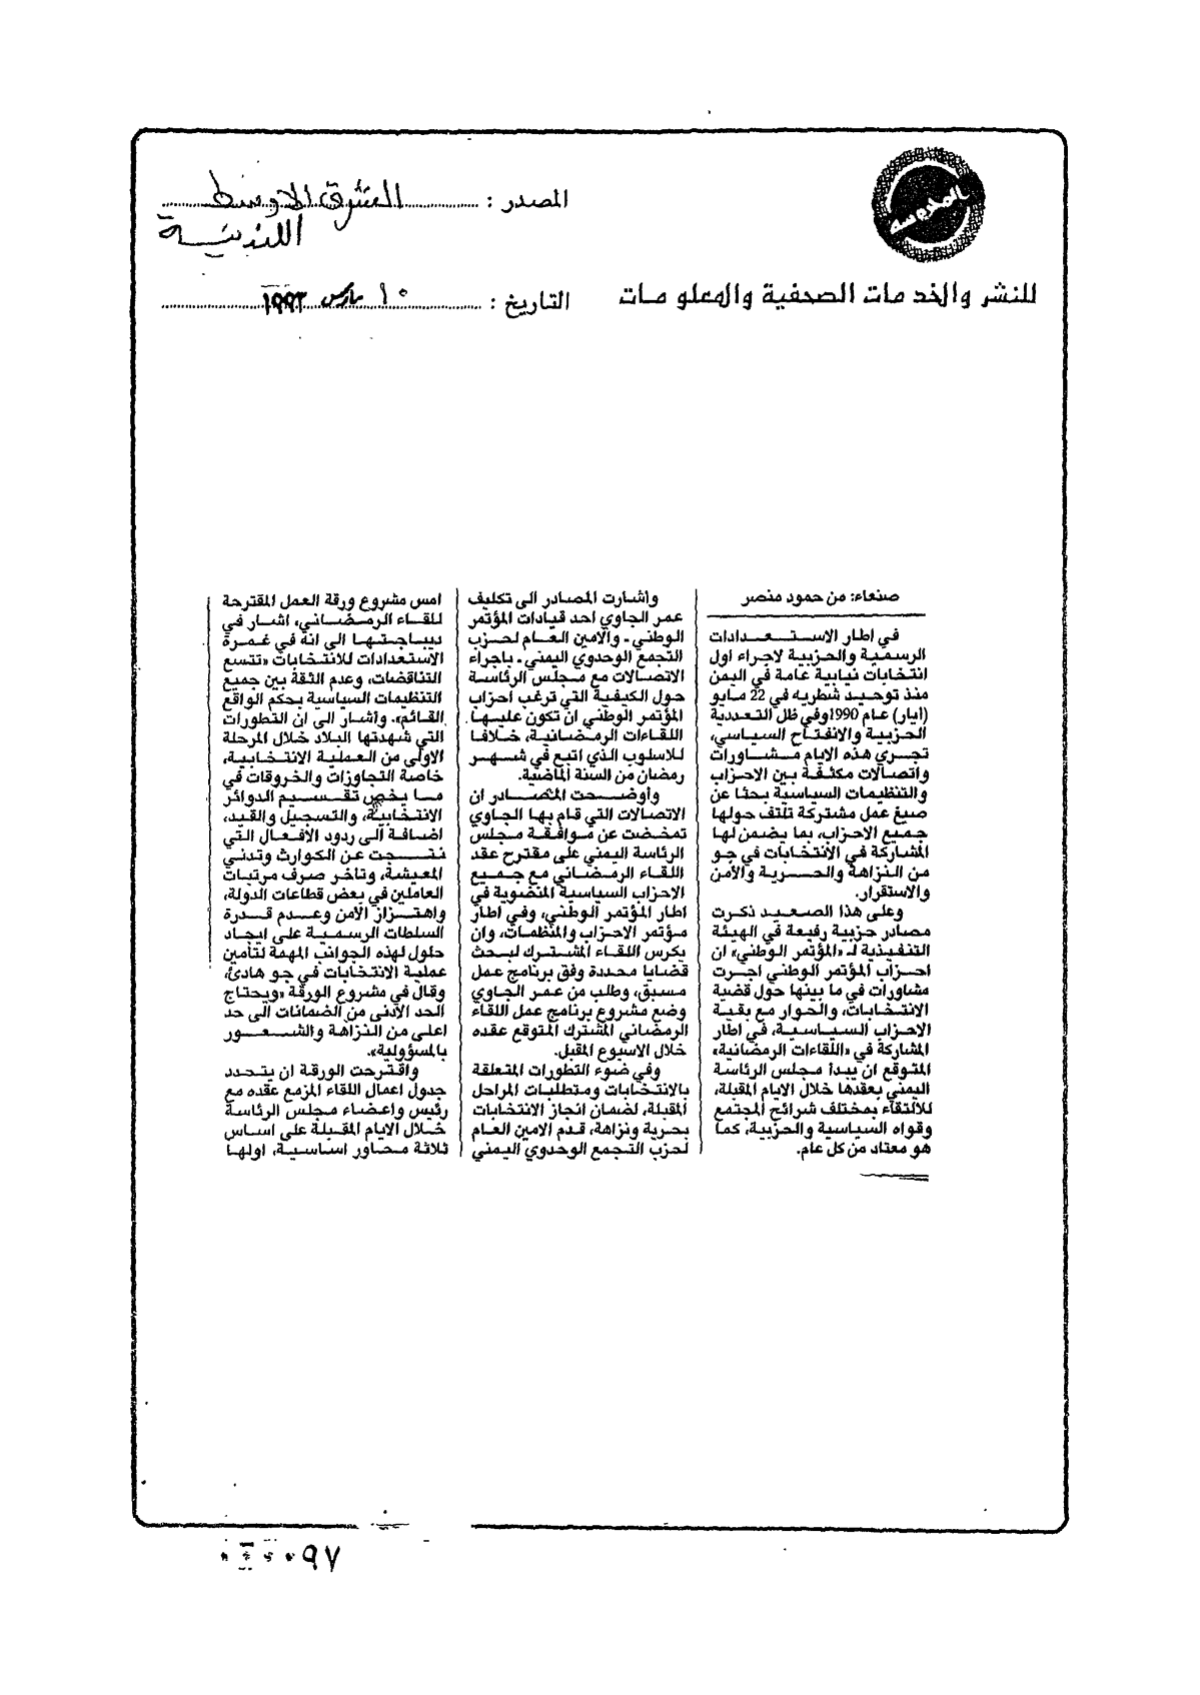 المصدر : الشرق الاوسط
اللندنية
للنشر والخدمات الصحفية والمعلومات
التاريخ : ١٠ مارس ١٩٩٣
صنعاء: من حمود منصر
في اطار الاستعدادات
الرسمية والحزبية لاجراء اول
انتخابات نيابية عامة في اليمن
منذ توحيد شطريه في 22 مايو
(ايار) عام 1990 وفي ظل التعددية
الحزبية والانفتاح السياسي،
تجري هذه الايام مشاورات
واتصالات مكثفة بين الاحزاب
والتنظيمات السياسية بحثا عن
صيغ عمل مشتركة تلتف حولها
جميع الاحزاب، بما يضمن لها
المشاركة في الانتخابات في جو
من النزاهة والحرية والأمن
والاستقرار.
وعلى هذا الصعيد ذكرت
مصادر حزبية رفيعة في الهيئة
التنفيذية لـ «المؤتمر الوطني» ان
احزاب المؤتمر الوطني اجرت
مشاورات في ما بينها حول قضية
الانتخابات، والحوار مع بقية
الاحزاب السياسية، في اطار
المشاركة في «اللقاءات الرمضانية»
المتوقع ان يبدا مجلس الرئاسة
اليمني بعقدها خلال الايام المقبلة،
للالتقاء بمختلف شرائح المجتمع
وقواه السياسية والحزبية، كما
هو معتاد من كل عام.
واشارت المصادر الى تكليف
عمر الجاوي احد قيادات المؤتمر
الوطني ـ والامين العام لحزب
التجمع الوحدوي اليمني ـ باجراء
الاتصالات مع مجلس الرئاسة
حول الكيفية التي ترغب احزاب
المؤتمر الوطني ان تكون عليها
اللقاءات الرمضانية، خلافا
للاسلوب الذي اتبع في شهر
رمضان من السنة الماضية.
وأوضحت المصادر ان
الاتصالات التي قام بها الجاوي
تمخضت عن موافقة مجلس
الرئاسة اليمني على مقترح عقد
اللقاء الرمضاني مع جميع
الاحزاب السياسية المنضوية في
اطار المؤتمر الوطني، وفي اطار
مؤتمر الاحزاب والمنظمات، وان
يكرس اللقاء المشترك لبحث
قضايا محددة وفق برنامج عمل
مسبق، وطلب من عمر الجاوي
وضع مشروع برنامج عمل اللقاء
الرمضاني المشترك المتوقع عقده
خلال الاسبوع المقبل.
وفي ضوء التطورات المتعلقة
بالانتخابات ومتطلبات المراحل
المقبلة، لضمان انجاز الانتخابات
بحرية ونزاهة، قدم الامين العام
لحزب التجمع الوحدوي اليمني
امس مشروع ورقة العمل المقترحة
للقاء الرمضاني، اشار في
ديباجتها الى انه في غمرة
الاستعدادات للانتخابات «تتسع
التناقضات، وعدم الثقة بين جميع
التنظيمات السياسية بحكم الواقع
القائم». واشار الى ان التطورات
التي شهدتها البلاد خلال المرحلة
الاولى من العملية الانتخابية،
خاصة التجاوزات والخروقات في
ما يخص تقسيم الدوائر
الانتخابية، والتسجيل والقيد،
اضافة الى ردود الافعال التي
نتجت عن الكوارث وتدني
المعيشة، وتاخر صرف مرتبات
العاملين في بعض قطاعات الدولة،
واهتزاز الأمن وعدم قدرة
السلطات الرسمية على ايجاد
حلول لهذه الجوانب المهمة لتأمين
عملية الانتخابات في جو هادئ،
وقال في مشروع الورقة «ويحتاج
الحد الادنى من الضمانات الى حد
اعلى من النزاهة والشعور
بالمسؤولية».
واقترحت الورقة ان يتحدد
جدول اعمال اللقاء المزمع عقده مع
رئيس واعضاء مجلس الرئاسة
خلال الايام المقبلة على اساس
ثلاثة محاور اساسية، اولها